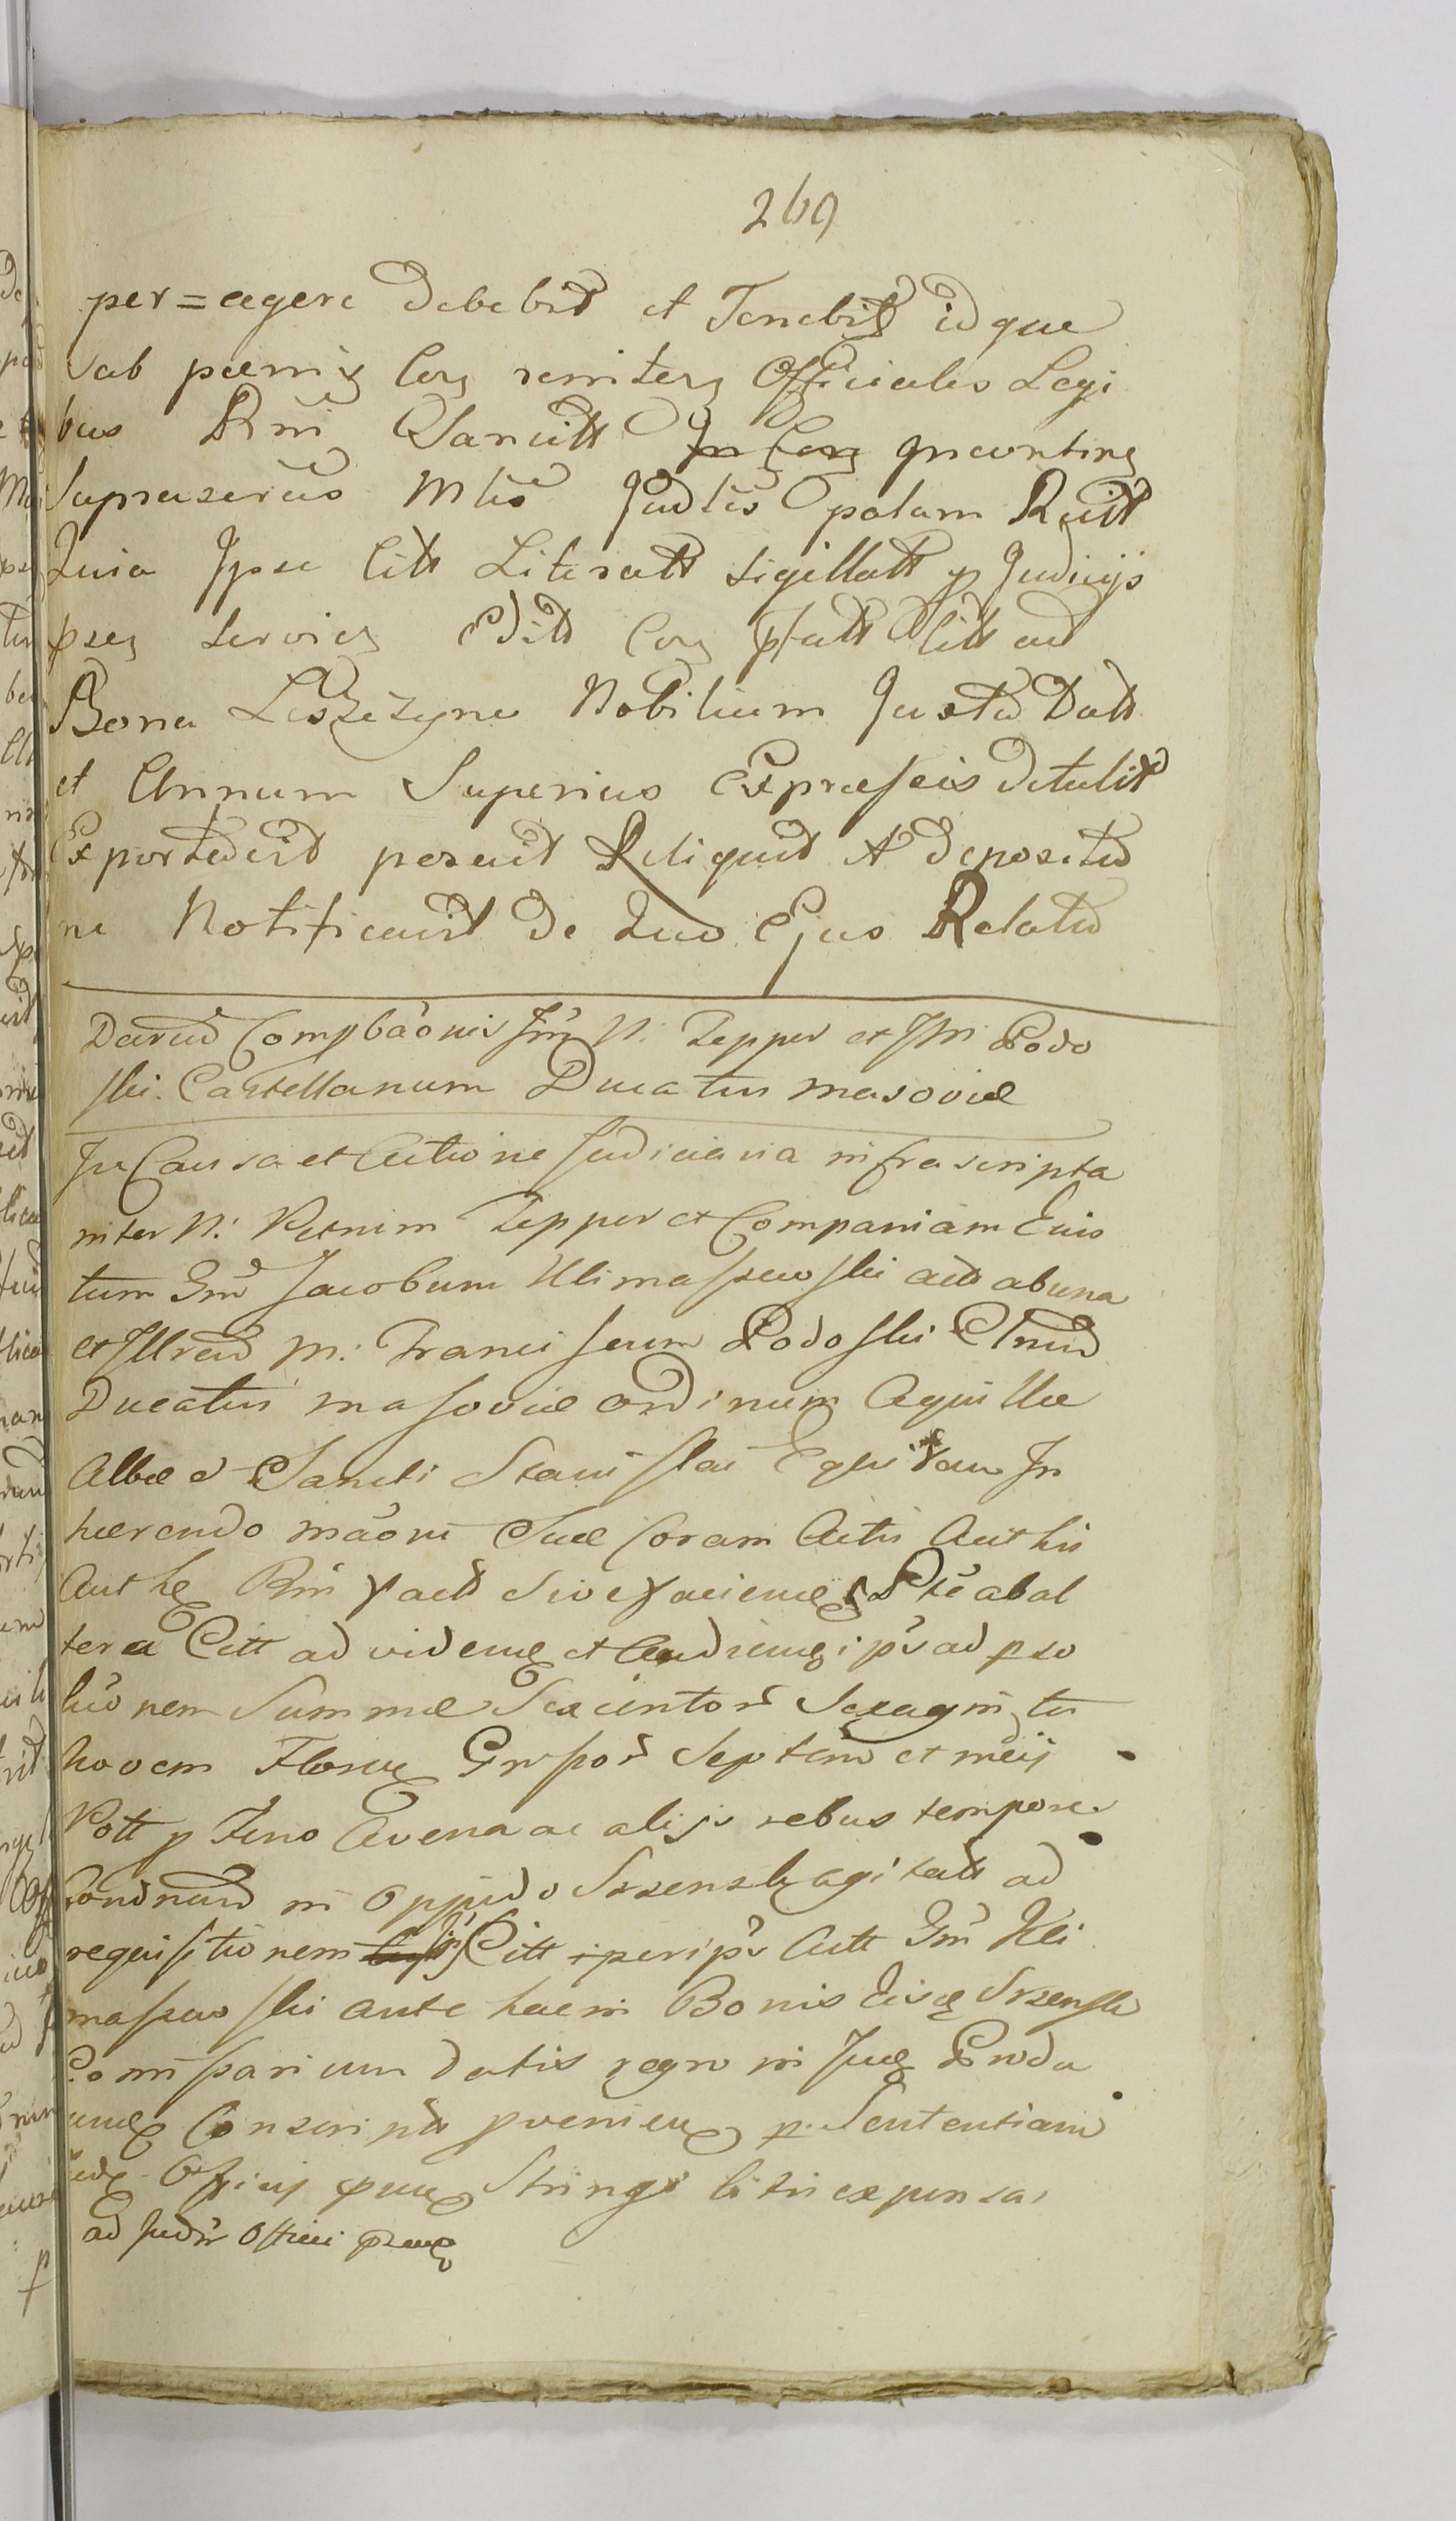 269
per=agere debebit et Tenebit idque
sub paenis Cons remitens Officiales Legi
bus Rni Sancitt In Cons Incontins
Suprascrius Mtis Judlis palam Recitt
Quia Ipse Citt Literatt sigillatt p Judicijs
pses serviens Edit Cons pfatt Citt ad
Bona Leszczyna Nobilium Juxta Datt
et Annum Superius Expressis detulit
Exportavit posuit Reliquit et deposita
ne Notificavit de Quo Ejus Relatio
Comp Jm N. Tepper et JM Podo
ski Castellanum Ducatus Masoviae
In Causa et Actione Judiciaria infrascripta
inter N: Petrum Tepper et Companiam Eius
tum Gm Jacobum Klimaszewski act ab una
et Illrem M: Franciscum Podoski Clnum
Ducatus Masoviae Ordinum Aquilae
Albae & Sancti Stanislai Equitem In
haerendo maoni Suae Coram Actis Authis
Authe Rni fact Sive faciende Pte ab al
tera Citt ad videne et Audiene ips ad pso
luonem Summae Sexcentor Sexaginta
novem Floren Grossor Septem et medij
Poll p Feno Avena ac alijs rebus tempore
in Oppido Srensk agitatt ad
requisitionem Citt per ips Actt Gm Kli
maszewski ante hac in Bonis Eise Srensk
Comissarium datis regro in Jue Produ
cene Conscript provenien p Sententiam
Jude Officij psens Strings litis expensas
ad Judm Officii psens